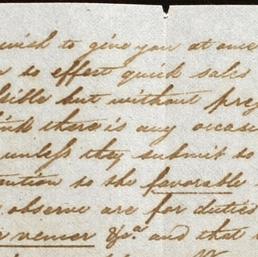 wish to give you at once
to effect quick sales
sible but without prej
ink there is any occas
unless they submit to
tention to the favorable
observe are for duties
&ca and that